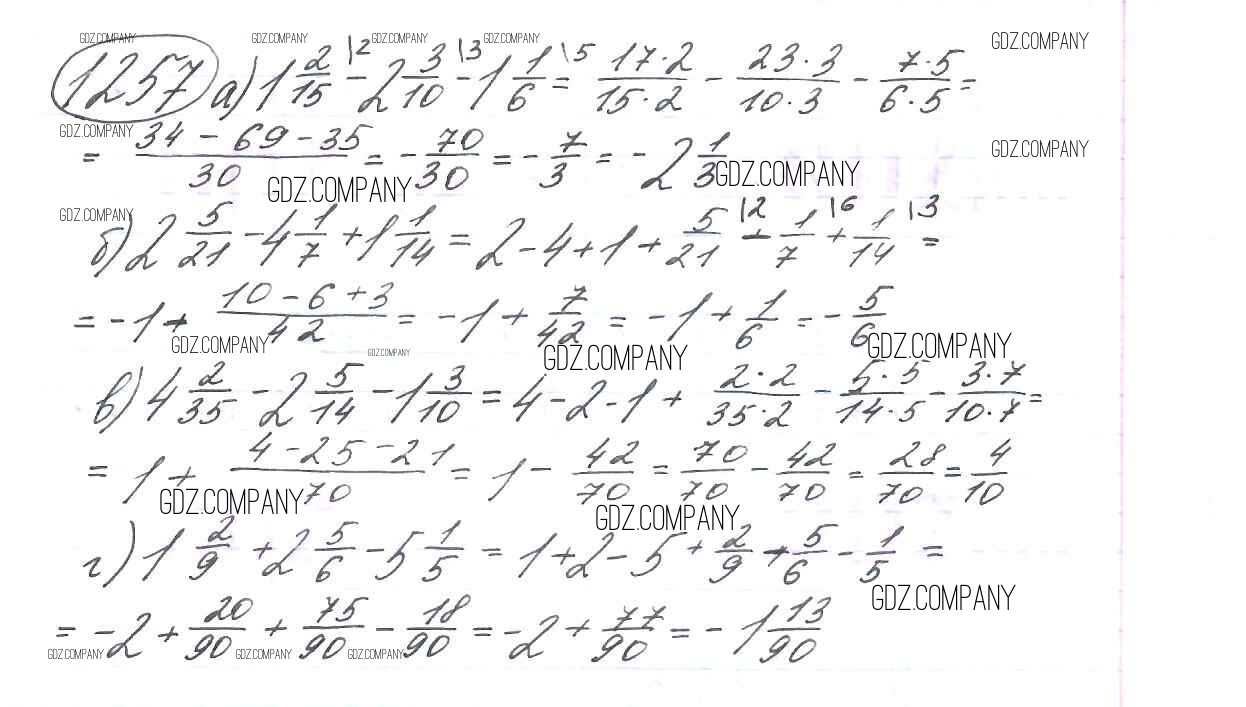 GDZ.COMPANY GDZ.COMPANY GDZ.COMPANY GDZ.COMPANY GDZ.COMPANY
1257 а) 1 2/15 |2 − 2 3/10 |3 − 1 1/6 \5 = 17·2/15·2 − 23·3/10·3 − 7·5/6·5 =
GDZ.COMPANY GDZ.COMPANY
= 34 − 69 − 35/30 = − 70/30 = − 7/3 = − 2 1/3
GDZ.COMPANY GDZ.COMPANY
GDZ.COMPANY
б) 2 5/21 − 4 1/7 + 1 1/14 = 2 − 4 + 1 + 5/21 |2 − 1/7 |6 + 1/14 |3 =
= −1 + 10 − 6 + 3/42 = −1 + 7/42 = −1 + 1/6 = − 5/6
GDZ.COMPANY GDZ.COMPANY GDZ.COMPANY GDZ.COMPANY
в) 4 2/35 − 2 5/14 − 1 3/10 = 4 − 2 − 1 + 2·2/35·2 − 5·5/14·5 − 3·7/10·7 =
= 1 + 4 − 25 − 21/70 = 1 − 42/70 = 70/70 − 42/70 = 28/70 = 4/10
GDZ.COMPANY GDZ.COMPANY
г) 1 2/9 + 2 5/6 − 5 1/5 = 1 + 2 − 5 + 2/9 + 5/6 − 1/5 =
GDZ.COMPANY
= −2 + 20/90 + 75/90 − 18/90 = −2 + 77/90 = − 1 13/90
GDZ.COMPANY GDZ.COMPANY GDZ.COMPANY